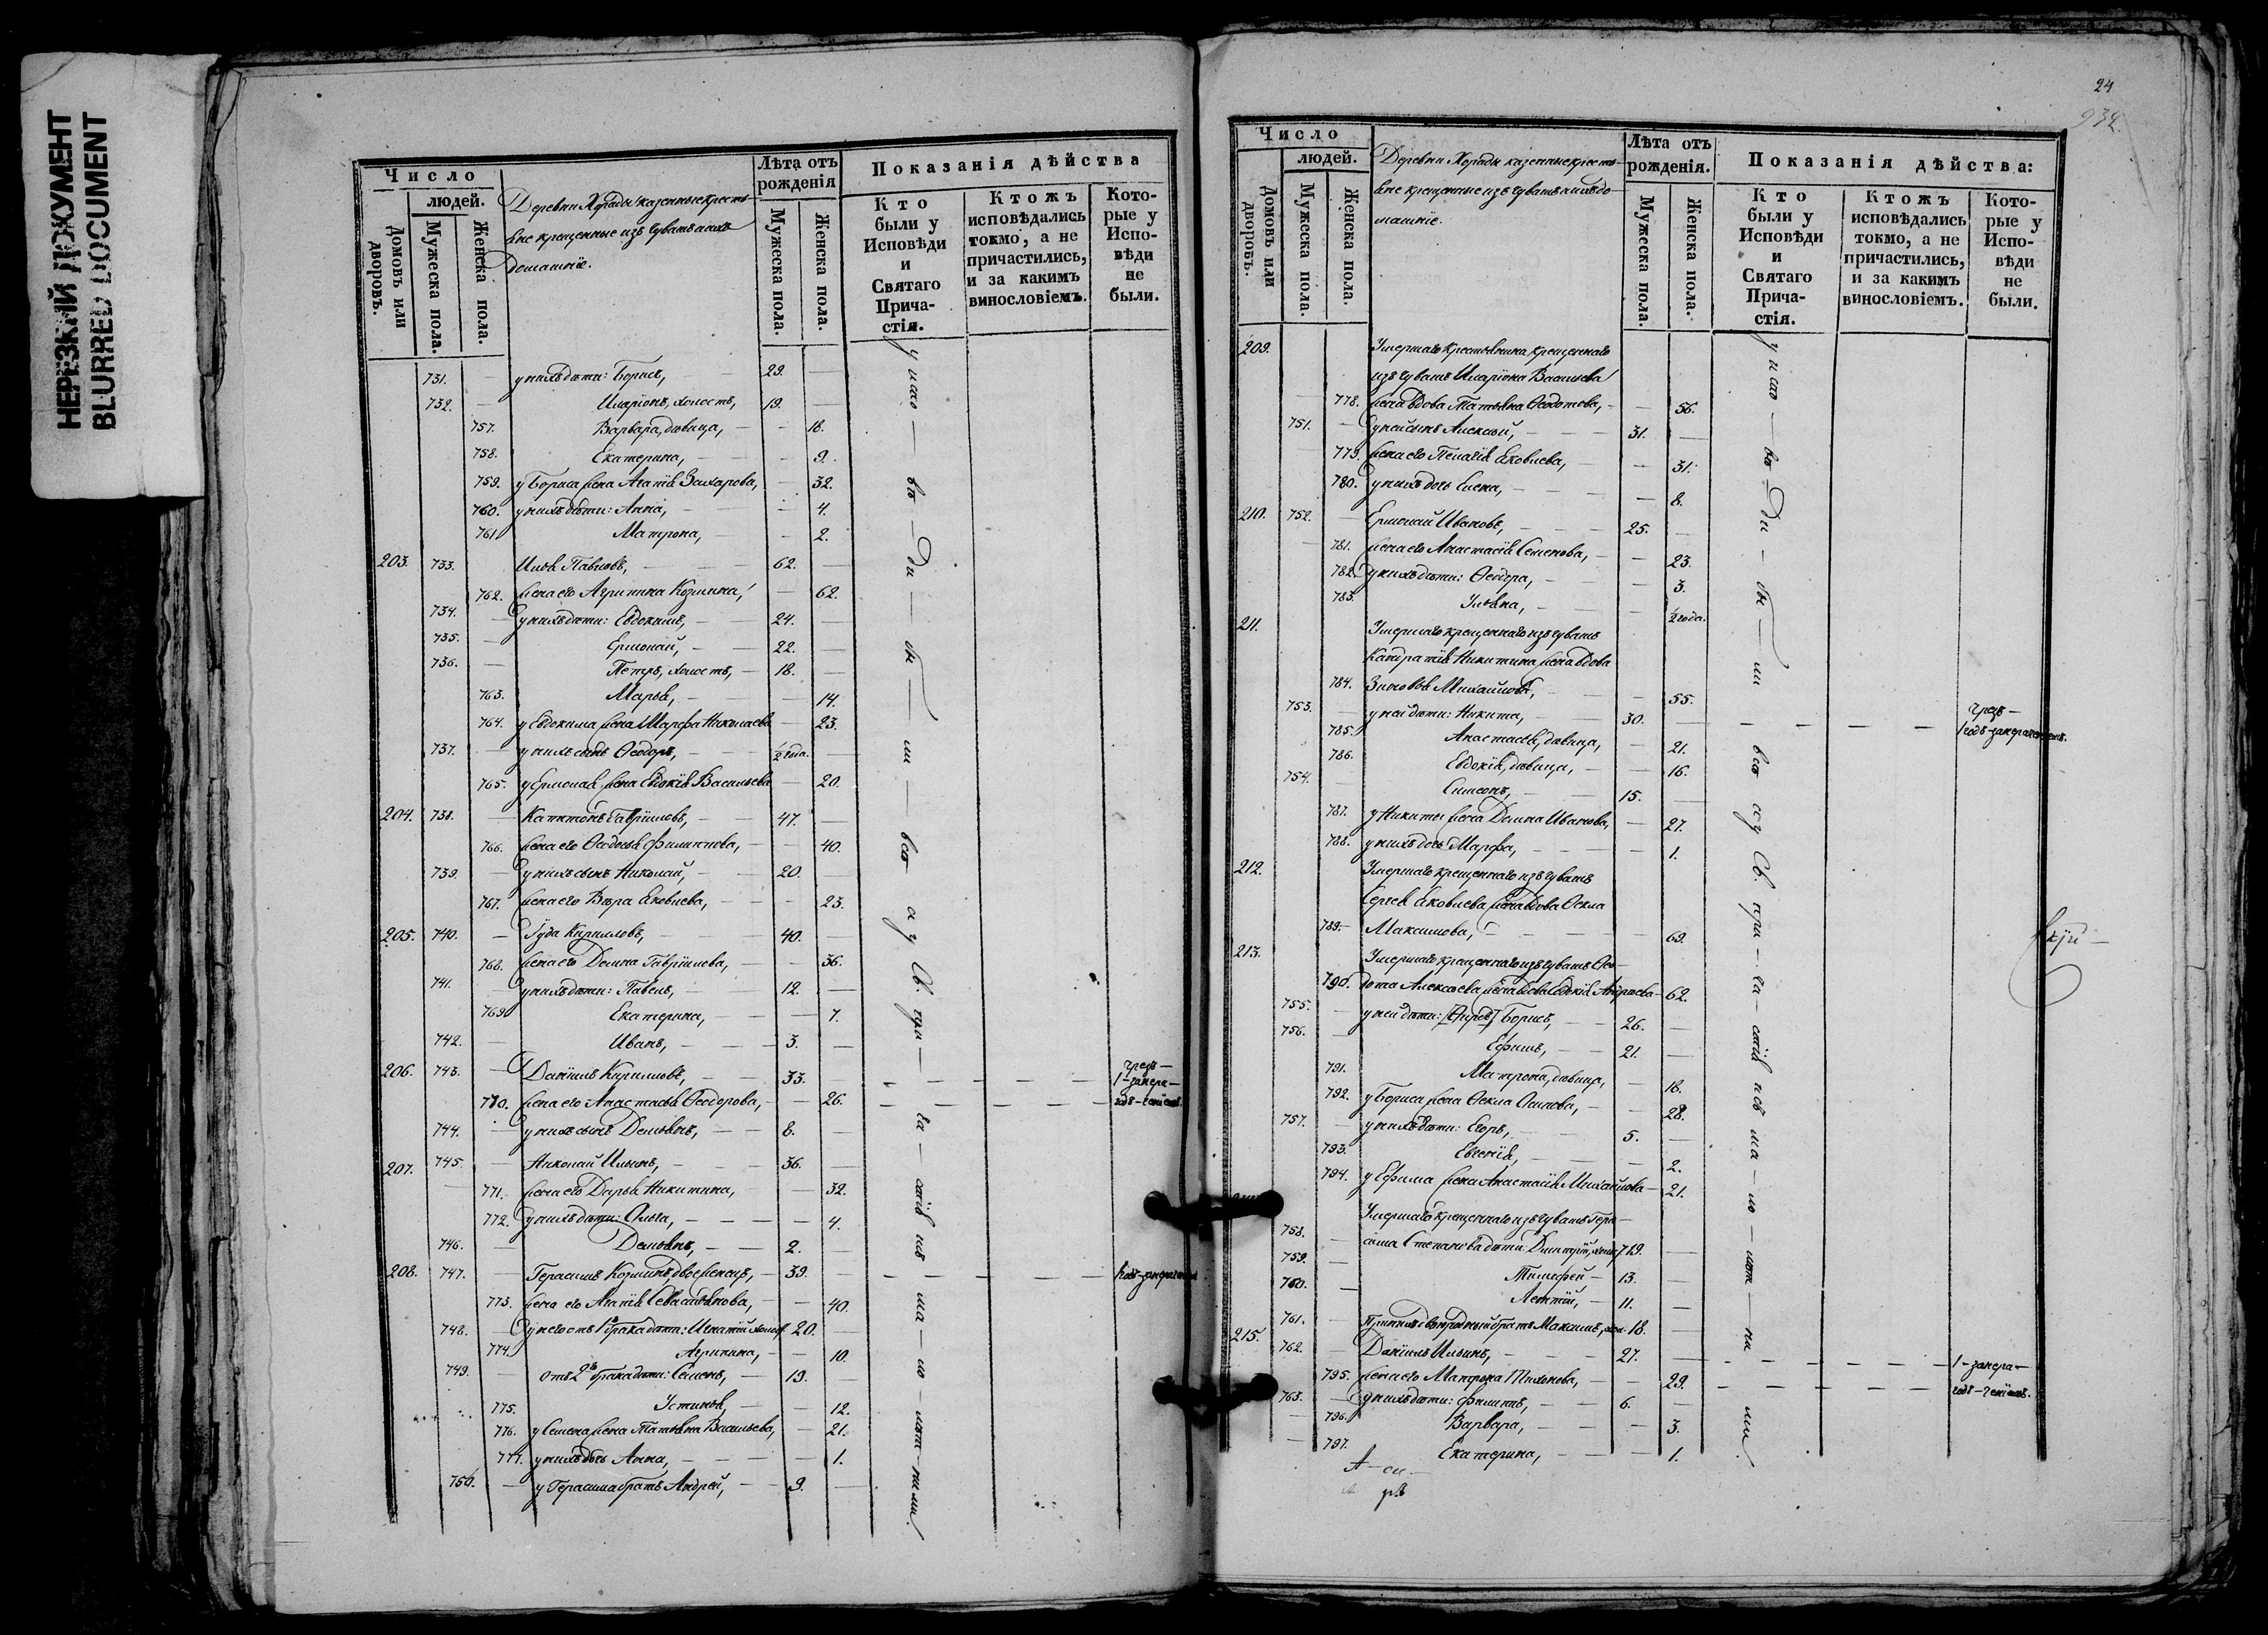 НЕРЕЗКИЙ ДОКУМЕНТ
BLURRED DOCUMENT
Число
людей.
Домовъ или дворовъ.
Мужеска пола.
Женска пола.
Деревни казенные кресть-
яне крещенные изъ чувашъ и ихъ
домашніе.
Лѣта отъ рожденія
Мужеска пола.
Женска пола.
Показанія дѣйства
Кто были у Исповѣди и Святаго Прича-стія.
Ктожъ исповѣдались токмо, а не причастились, и за какимъ винословіемъ.
Кото-рые у Испо-вѣди не были.
731. у нихъ дѣти: Борисъ, 29.
732. Иларіонъ, холостъ, 19.
757. Варвара, дѣвица, 18.
758. Екатерина, 9.
759. у Бориса жена Агапія Захарова, 32.
760. у нихъ дѣти: Анна, 4.
761. Матрона, 2.
203. 733. Илья Павловъ, 62.
762. жена его Агрипина Козмина, 62.
734. у нихъ дѣти: Евдокимъ, 24.
735. Ермолай, 22.
736. Петръ, холостъ, 18.
763. Марья, 14.
764. у Евдокима жена Марфа Николаева 23.
737. у нихъ сынъ Ѳеодоръ, ½ года.
765. у Ермолая жена Евдокія Васильева 20.
204. 738. Капитонъ Гавріиловъ, 47.
766. жена его Ѳеодосья Филиппова, 40.
739. у нихъ сынъ Николай, 20.
767. жена его Вѣра Яковлева, 23.
205. 740. Іуда Кирилловъ, 40.
768. жена его Домна Гавріилова, 36.
741. у нихъ дѣти: Павелъ, 12.
769. Екатерина, 7.
742. Иванъ, 3.
206. 743. Даніилъ Кирилловъ, 33.
770. жена его Анастасья Ѳеодорова, 26.
744. у нихъ сынъ Демьянъ, 8.
207. 745. Николай Ильинъ, 36.
771. жена его Дарья Никитина, 32.
772. у нихъ дѣти: Ольга, 4.
746. Демьянъ, 2.
208. 747. Герасимъ Козминъ, двоеженецъ, 39.
773. жена его Агапія Севастьянова, 40.
748. у него отъ 1го брака дѣти: Игнатій холост 20.
774. Агрипина, 10.
749. отъ 2го брака дѣти: Семенъ, 19.
775. Устинья, 12.
776. у Семена жена Татьяна Васильева, 21.
777. у нихъ дочь Анна, 1.
750. у Герасима братъ Андрей, 9.
24
932.
Число
людей.
Домовъ или дворовъ.
Мужеска пола.
Женска пола.
Деревни казенные кресть-
яне крещенные изъ чувашъ и ихъ до
машніе.
Лѣта отъ рожденія.
Мужеска пола.
Женска пола.
Показанія дѣйства:
Кто были у Исповѣди и Святаго Прича-стія.
Ктожъ исповѣдались токмо, а не причастились, и за какимъ винословіемъ.
Кото-рые у Испо-вѣди не были.
209. Умершаго крестьянина крещеннаго
изъ чувашъ Иларіона Васильева
778. жена вдова Татьяна Ѳеодотова, 56.
751. у ней сынъ Алексѣй, 31.
779. жена его Пелагія Яковлева, 31.
780. у нихъ дочь Елена, 8.
210. 752. Ермолай Ивановъ, 25.
781. жена его Анастасія Семенова, 23.
782. у нихъ дѣти: Ѳеодора, 3.
783. Ульяна, ½ года.
211. Умершаго крещеннаго изъ чувашъ
Кондратія Никитина жена вдова
784. Зиновья Михайлова, 55.
753. у ней дѣти: Никита, 30.
785. Анастасья, дѣвица, 21.
786. Евдокія, дѣвица, 16.
754. Симеонъ, 15.
787. у Никиты жена Домна Иванова, 27.
788. у нихъ дочь Марфа, 1.
212. Умершаго крещеннаго изъ чувашъ
Сергея Яковлева жена вдова Ѳекла
789. Максимова, 69.
213. Умершаго крещеннаго изъ чувашъ Ѳео-
790. дота Алексѣева жена вдова Евдокія Андреева 62.
755. у ней дѣти: Борисъ, 26.
756. Ефимъ, 21.
791. Матрона, дѣвица, 18.
792. у Бориса жена Ѳекла Осипова, 28.
757. у нихъ дѣти: Егоръ, 5.
793. Евгенія, 2.
794. у Ефима жена Анастасія Михайлова 21.
Умершаго крещеннаго изъ чувашъ Гера-
758. сима Степанова дѣти: Дмитрій, холос 19.
759. Тимофей 13.
760. 11.
761. При нихъ двоюродный братъ Максимъ, хол. 18.
215. 762. Даніилъ Ильинъ, 27.
795. жена его Матрона Тихонова, 29.
763. у нихъ дѣти: Филиппъ, 6.
796. Варвара, 3.
797. Екатерина, 1.